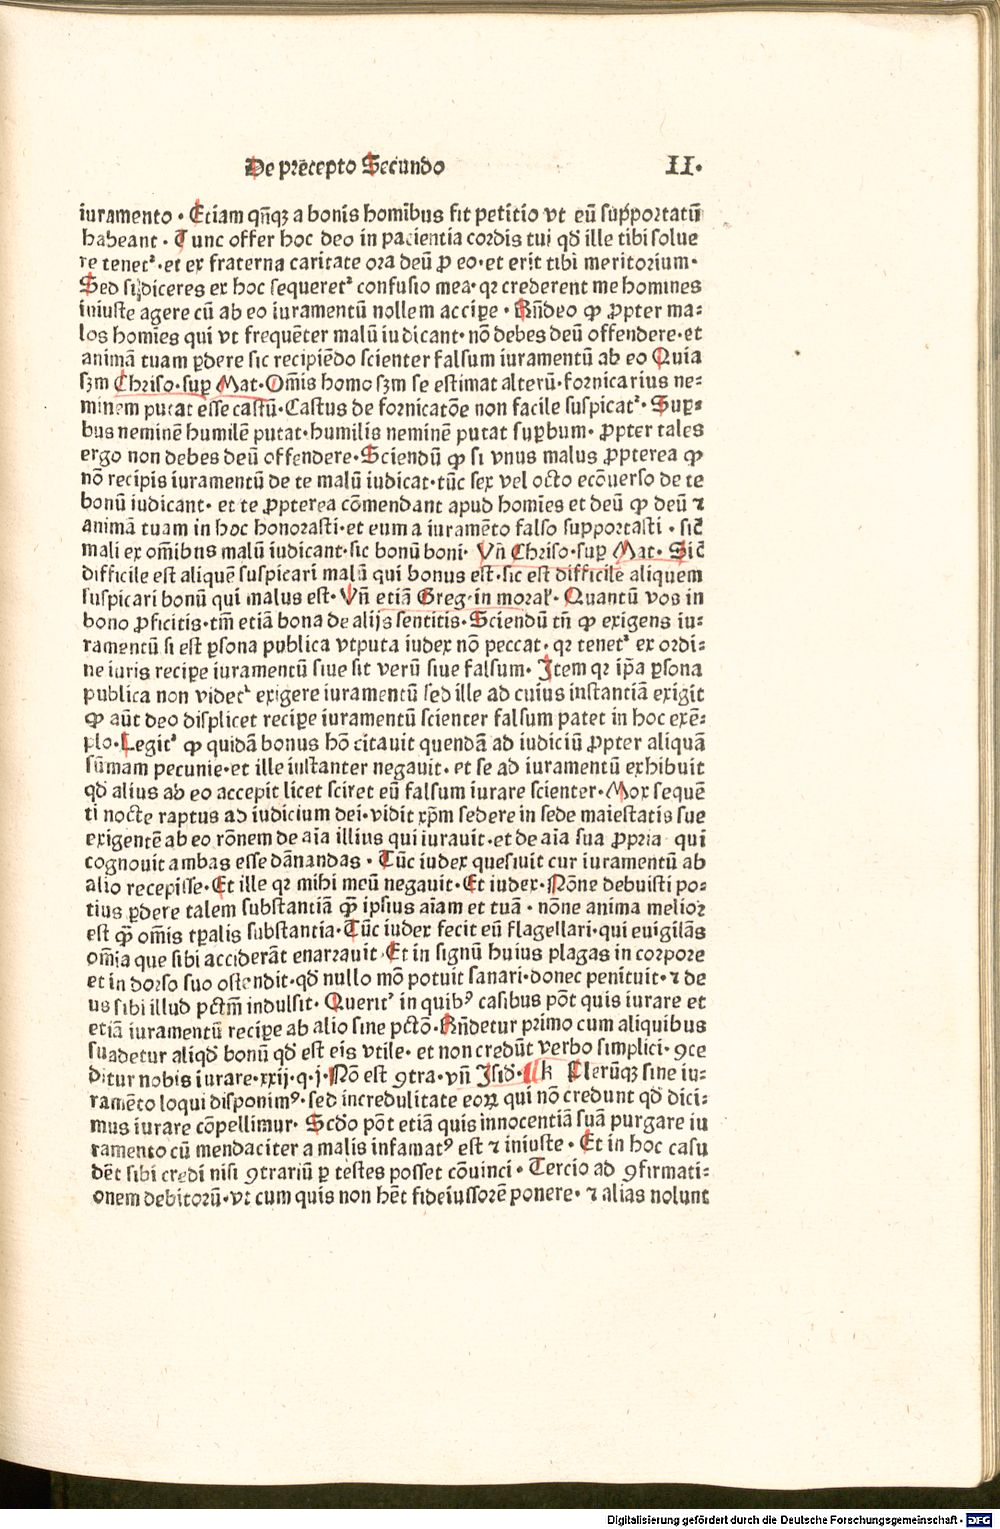 De precepto Secundo II.
iuramento · Etiam qñqꝫ a bonis homibus fit petitio vt eū supportatū
habeant · Tunc offer hoc deo in pacientia cordis tui qđ ille tibi solue
re tenetᷣ · et ex fraterna caritate ora deū ꝓ eo · et erit tibi meritorium ·
Sed si diceres ex hoc sequeretᷣ confusio mea · qꝛ crederent me homines
iniuste agere cū ab eo iuramentū nollem accipe · Rñdeo ꝙ ꝓpter ma⸗
los homīes qui vt frequēter malū iudicant · nō debes deū offendere · et
animā tuam ꝑdere sic recipiēdo scienter falsum iuramentū ab eo Quia
sꝫm Chriso · suꝑ Mat · Om̄is homo sꝫm se estimat alterū · fornicarius ne⸗
minem putat esse castū · Castus de fornicatōe non facile suspicatᷣ · Suꝑ⸗
bus neminē humilē putat · humilis neminē putat suꝑbum · ꝓpter tales
ergo non debes deū offendere · Sciendū ꝙ si vnus malus ꝓpterea ꝙ
nō recipis iuramentū de te malū iudicat · tūc sex vel octo ecōuerso de te
bonū iudicant · et te ꝓpterea cōmendant apud homīes et deū ꝙ deū ⁊
animā tuam in hoc honorasti · et eum a iuramēto falso supportasti · sic̄
mali ex om̄ibus malū iudicant · sic bonū boni · Vñ Chriso · suꝑ Mat · Sic̄
difficile est aliquē suspicari malū qui bonus est · sic est difficile aliquem
suspicari bonū qui malus est · Vñ etiā Greg · in moral · Quantū vos in
bono ꝓficitis · tm̄ etiā bona de alijs sentitis · Sciendū tñ ꝙ exigens iu⸗
ramentū si est ꝑsona publica vtputa iudex nō peccat · qꝛ tenetᷣ ex ordi⸗
ne iuris recipe iuramentū siue sit verū siue falsum · Item qꝛ ip̄a ꝑsona
publica non videtᷣ exigere iuramentū sed ille ad cuius instantiā exigit
ꝙ aūt deo displicet recipe iuramentū scienter falsum patet in hoc exē⸗
plo · Legitᷣ ꝙ quidā bonus hō citauit quendā ad iudiciū ꝓpter aliquā
sūmam pecunie · et ille instanter negauit · et se ad iuramentū exhibuit
qđ alius ab eo accepit licet sciret eū falsum iurare scienter · Mox sequē
ti nocte raptus ad iudicium dei · vidit xp̄m sedere in sede maiestatis sue
exigentē ab eo rōnem de aīa illius qui iurauit · et de aīa sua ꝓpria qui
cognouit ambas esse dānandas · Tūc iudex quesiuit cur iuramentū ab
alio recepisse · Et ille qꝛ mihi meū negauit · Et iudex · Nōne debuisti po⸗
tius ꝑdere talem substantiā ꝙ̄ ipsius aīam et tuā · nōne anima melior
est ꝙ̄ om̄is tꝑalis substantia · Tūc iudex fecit eū flagellari · qui euigilās
om̄ia que sibi acciderāt enarrauit · Et in signū huius plagas in corpore
et in dorso suo ostendit · qđ nullo mō potuit sanari · donec penituit · ⁊ de
us sibi illud pctm̄ indulsit · Queritᷣ in quibꝰ casibus pōt quis iurare et
etiā iuramentū recipe ab alio sine pctō · Rñdetur primo cum aliquibus
suadetur aliqđ bonū qđ est eis vtile · et non credūt verbo simplici · ꝯce
ditur nobis iurare · xxij · q · j · Nō est ꝯtra · vñ Isid · k Plerūqꝫ sine iu⸗
ramēto loqui disponimꝰ · sed incredulitate eoꝝ qui nō credunt qđ dici⸗
mus iurare cōpellimur · Scđo pōt etiā quis innocentiā suā purgare iu
ramento cū mendaciter a malis infamatꝰ est ⁊ iniuste · Et in hoc casu
dēt sibi credi nisi ꝯtrariū ꝑ testes posset cōuinci · Tercio ad ꝯfirmati⸗
onem debitorū · vt cum quis non hēt fideiussorē ponere · ⁊ alias nolunt
Digitalisierung gefördert durch die Deutsche Forschungsgemeinschaft - DFG